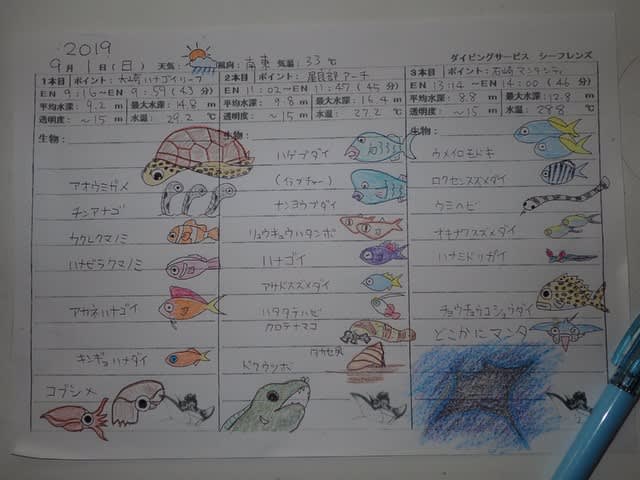 2019
9月1日(日) 天気: 風向:南東 気温:33℃ ダイビングサービス シーフレンズ
1本目 ポイント:大崎ハナゴイリーフ
EN 9:16～EN 9:59 (43分)
平均水深: 9.2 m 最大水深: 14.8 m
透明度: ～15 m 水温: 29.2 ℃
生物:
アオウミガメ
チンアナゴ
カクレクマノミ
ハナビラクマノミ
アカネハナゴイ
キンギョハナダイ
コブシメ
2本目 ポイント:屋良部アーチ
EN 11:02～EN 11:47 (45分)
平均水深: 9.8 m 最大水深: 16.4 m
透明度: ～15 m 水温: 27.2 ℃
生物:
ハゲブダイ
(イラブチャー)
ナンヨウブダイ
リュウキュウハタンポ
ハナゴイ
アサドスズメダイ
ハタタテハゼ
クロテナマコ
タカセ貝
ドクウツボ
3本目 ポイント:石崎マンタシティ
EN 13:14～EN 14:00 (46分)
平均水深: 8.8 m 最大水深: 12.8 m
透明度: ～15 m 水温: 28.8 ℃
生物:
ウメイロモドキ
ロクセンスズメダイ
ウミヘビ
オキナワスズメダイ
ハナミドリガイ
チョウチョウコショウダイ
どこかにマンタ